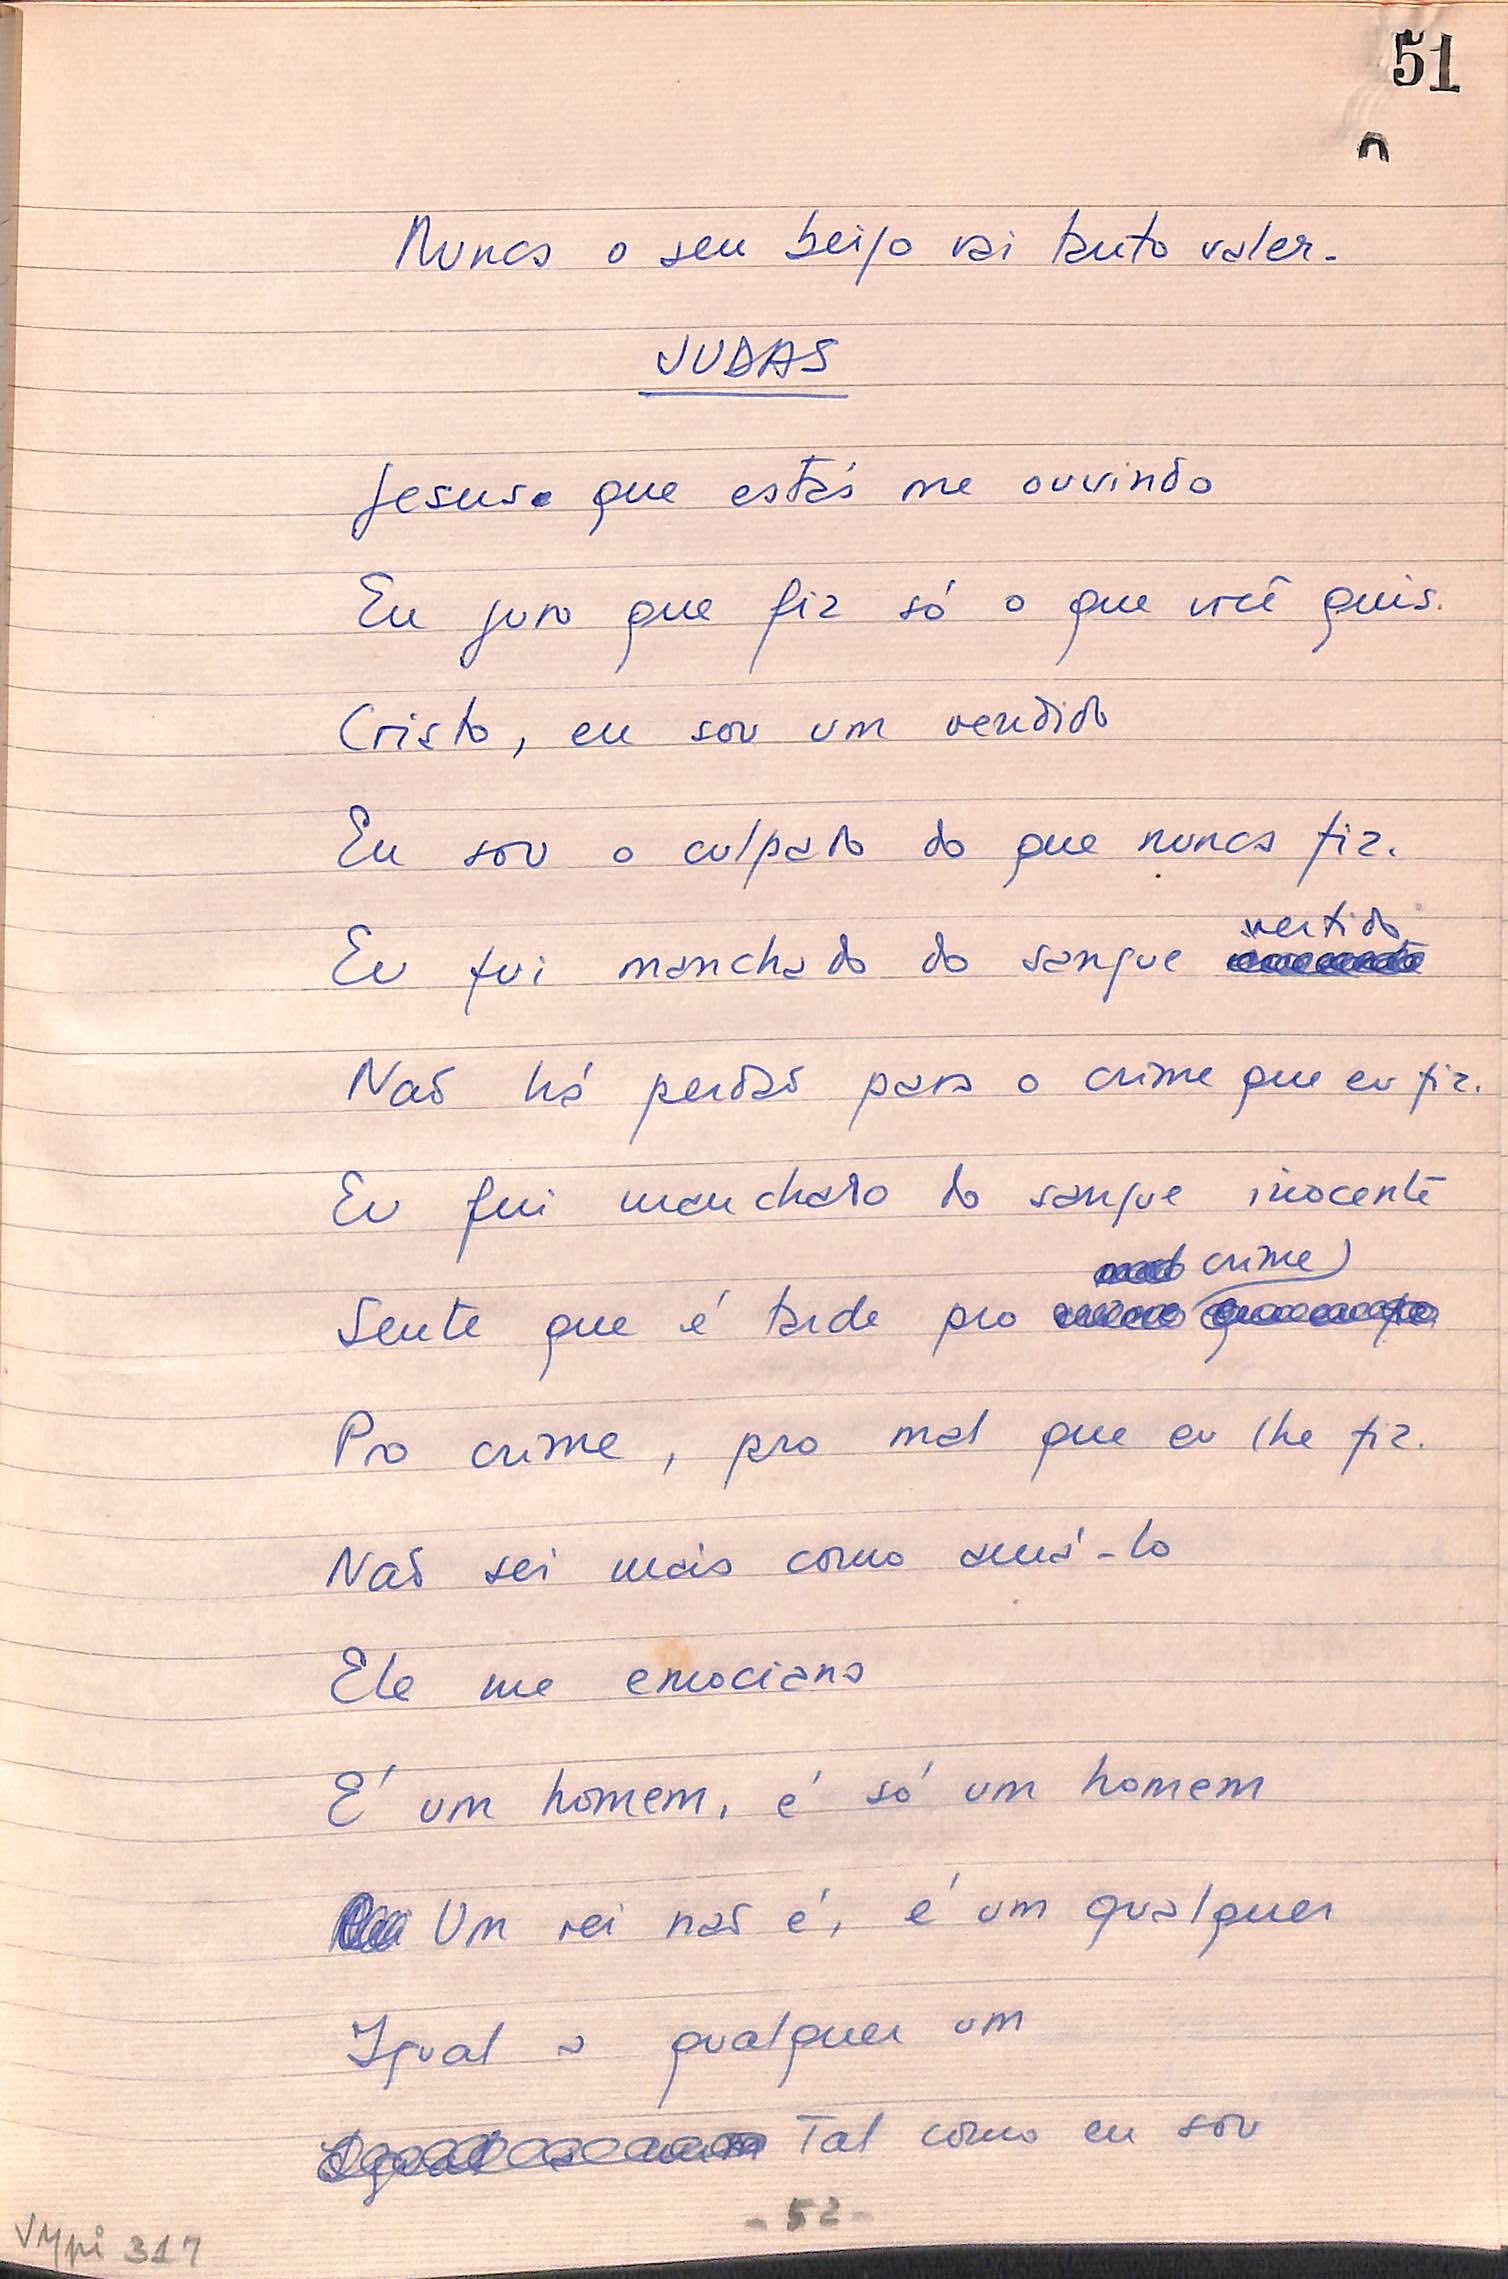 51
Nunca o seu beijo vai tanto valer.
JUDAS
Jesus que estás me ouvindo
Eu juro que fiz só o que você quis.
Cristo, eu sou um vendido
Eu sou o culpado do que nunca fiz.
vertido
Eu fui manchado do sangue
Não há perdão para o crime que eu fiz.
Eu fui manchado do sangue inocente
crime
Sente que é tarde pro
Pro crime, pro mal que eu lhe fiz.
Não sei mais como amá-lo
Ele me emociona
É um homem, é só um homem
Um rei não é, é um qualquer
Igual a qualquer um
Tal como eu sou
- 52 -
VMpi 317